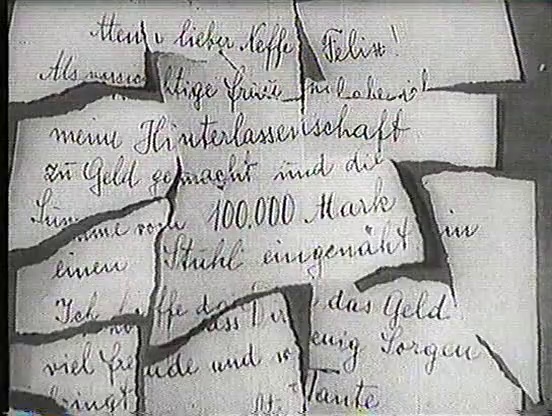 Mein lieber Neffe Felix!
Als vorsichtige Frau habe ich
meine Hinterlassenschaft
zu Geld gemacht und die
Summe von 100.000 Mark in
einen Stuhl eingenäht
Ich hoffe dass Dir das Geld
viel Freude und wenig Sorgen
bringt
Tante